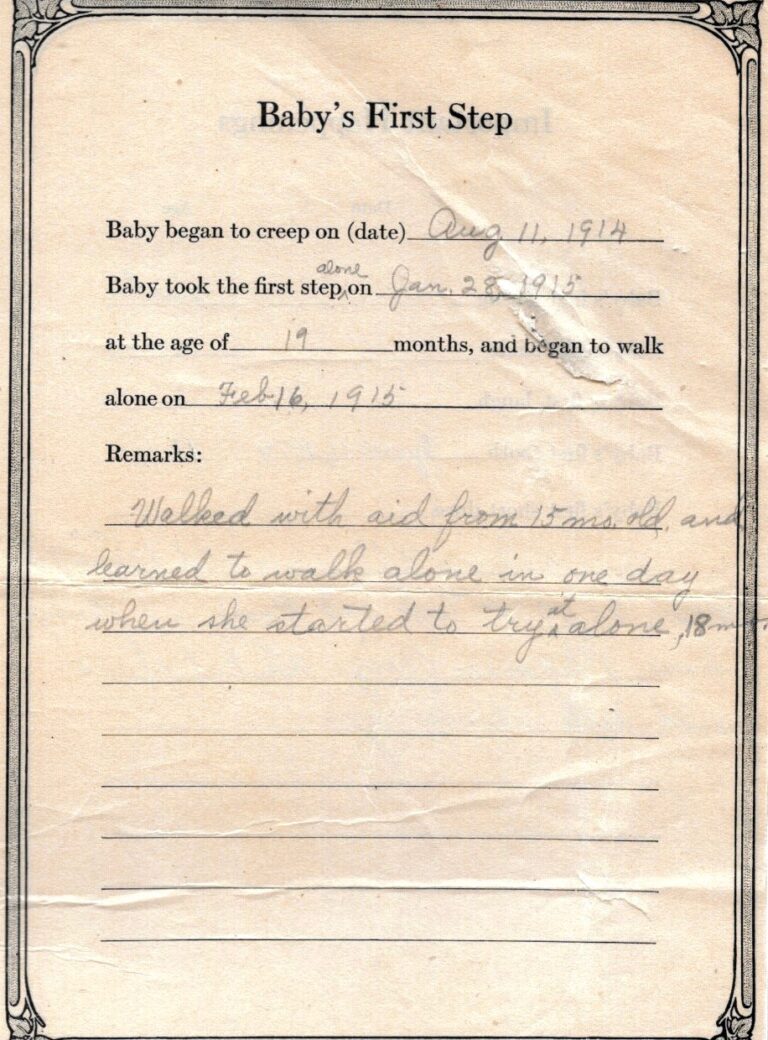 Baby's First Step
Baby began to creep on (date) Aug 11, 1914
alone
Baby took the first step ^ on Jan. 28, 1915
at the age of 19 months, and began to walk
alone on Feb 16, 1915
Remarks:
Walked with aid from 15 mo. old, and
learned to walk alone in one day
at
when she started to try ^ alone, 18 mos